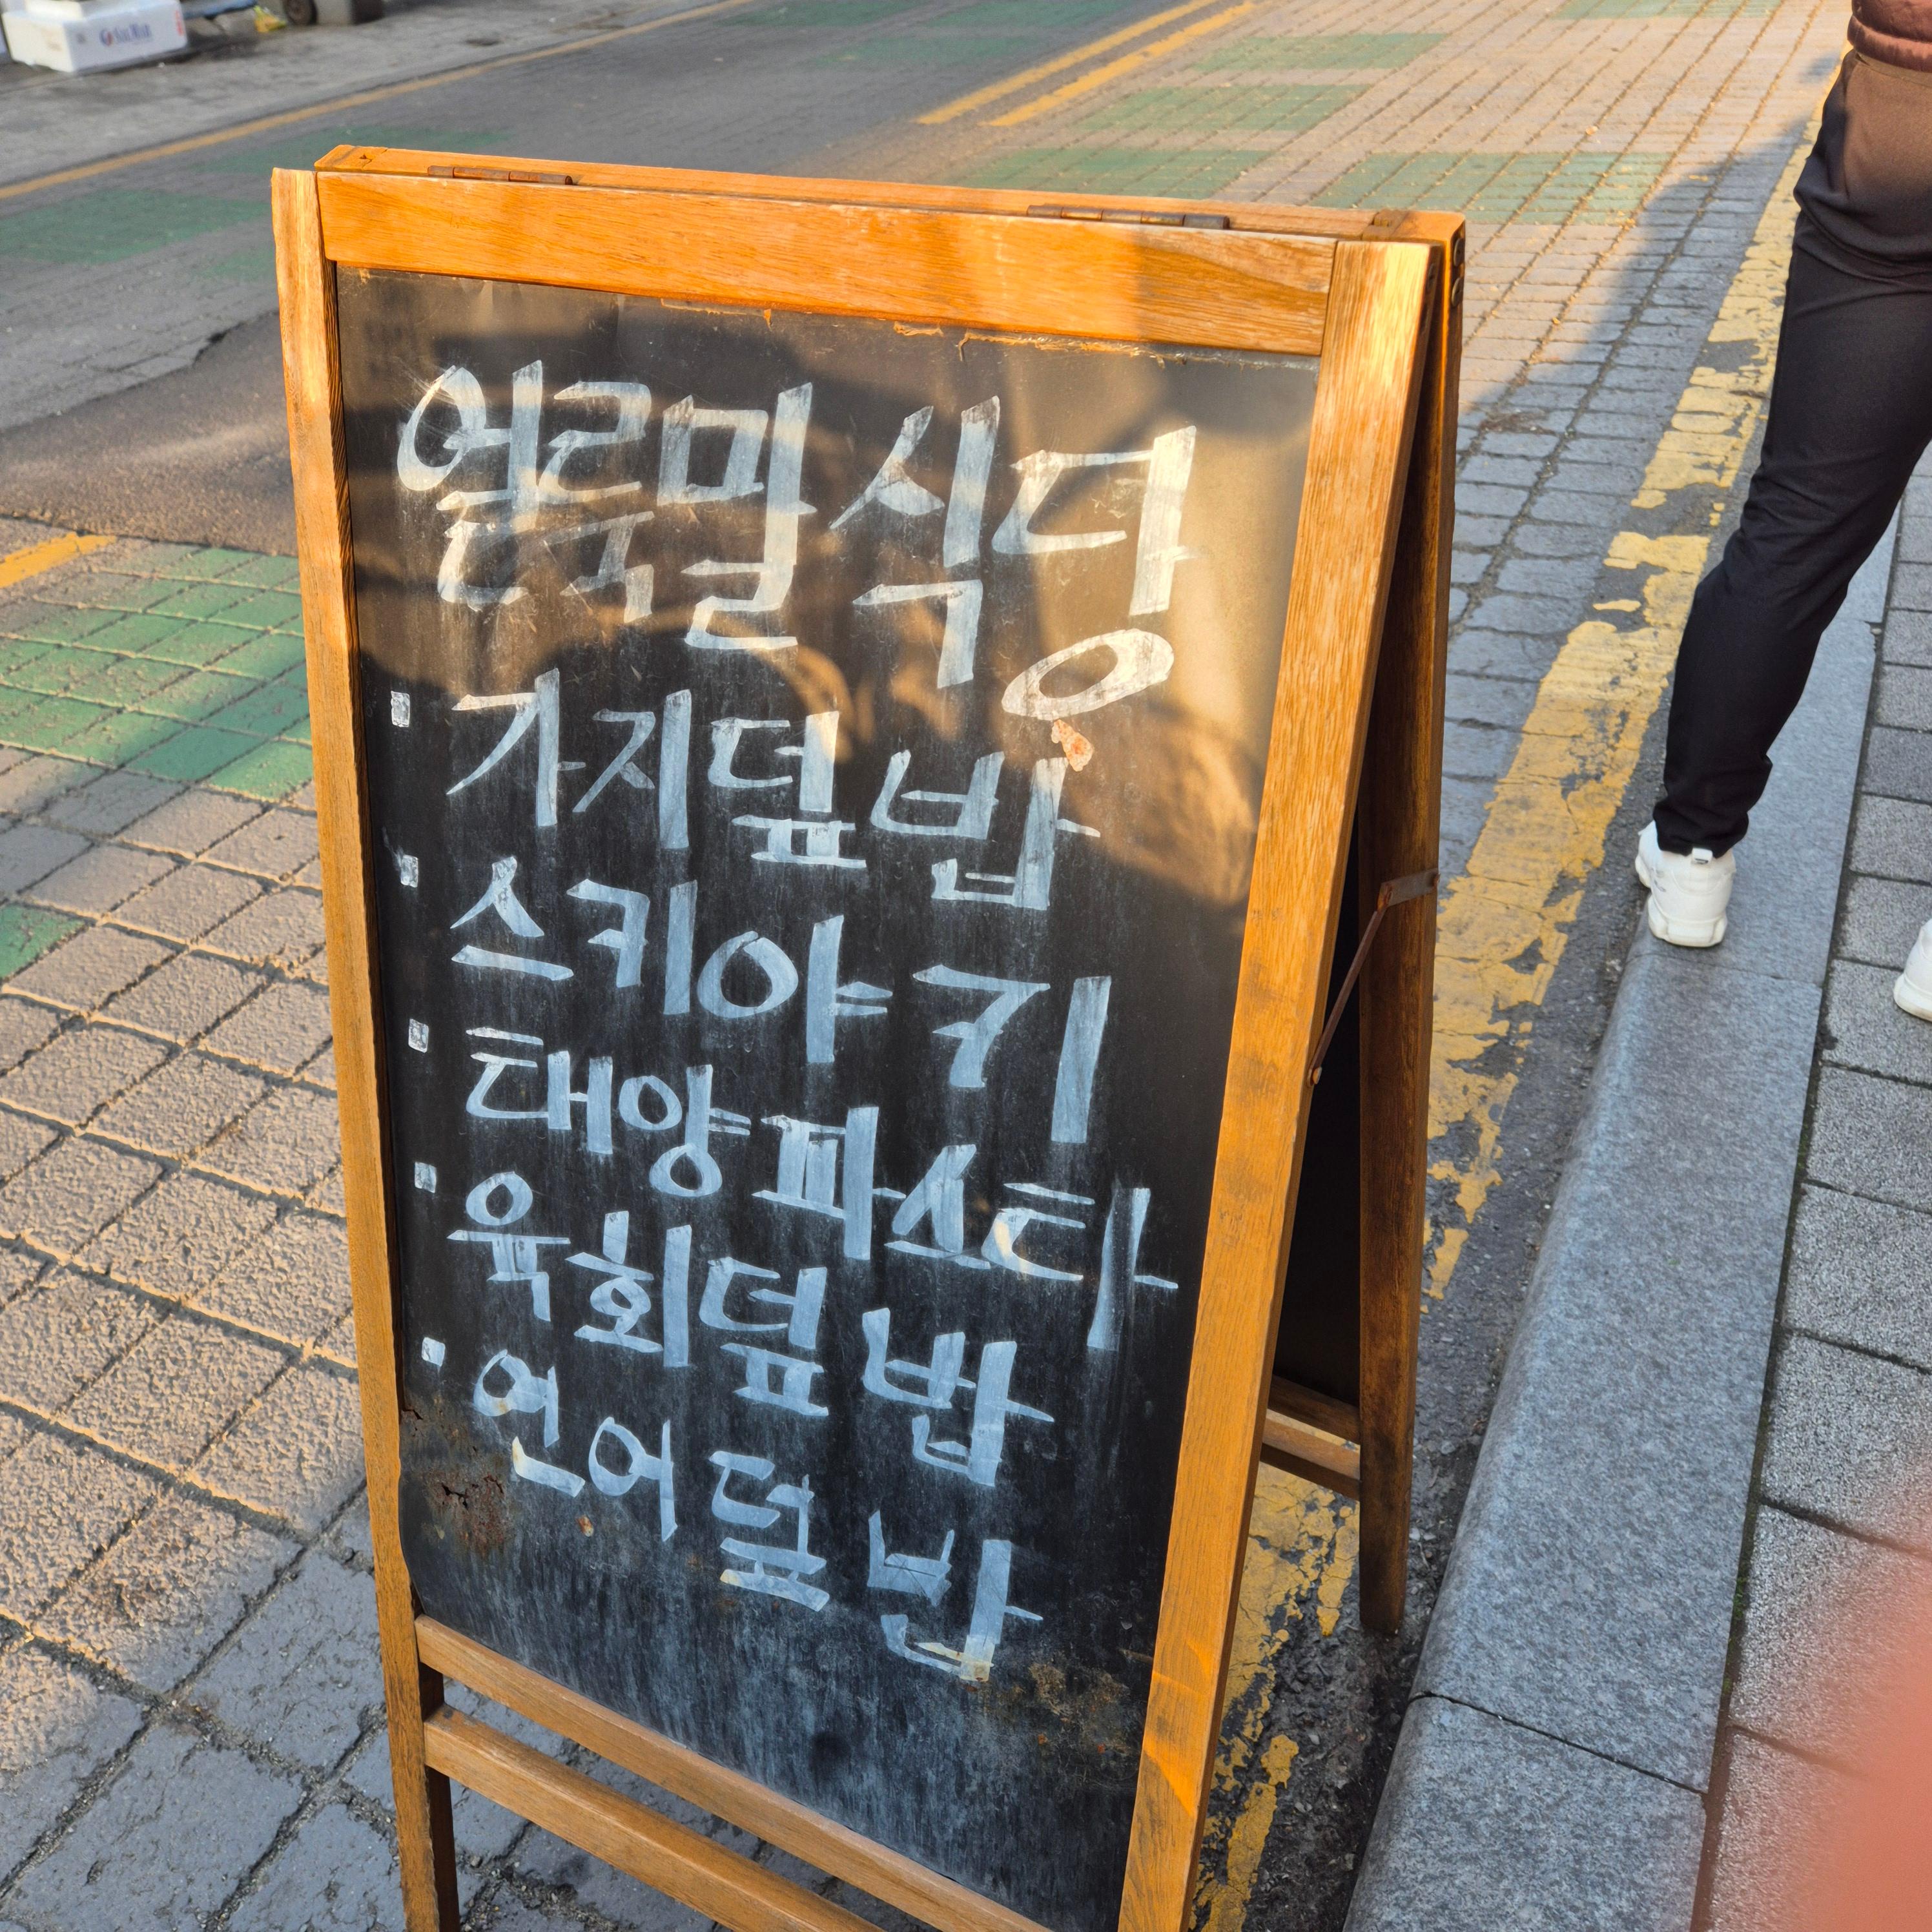 SALMAR
얼룩말식당
· 가지덮밥
· 스키야키
· 태양파스타
· 육회덮밥
· 연어덮밥